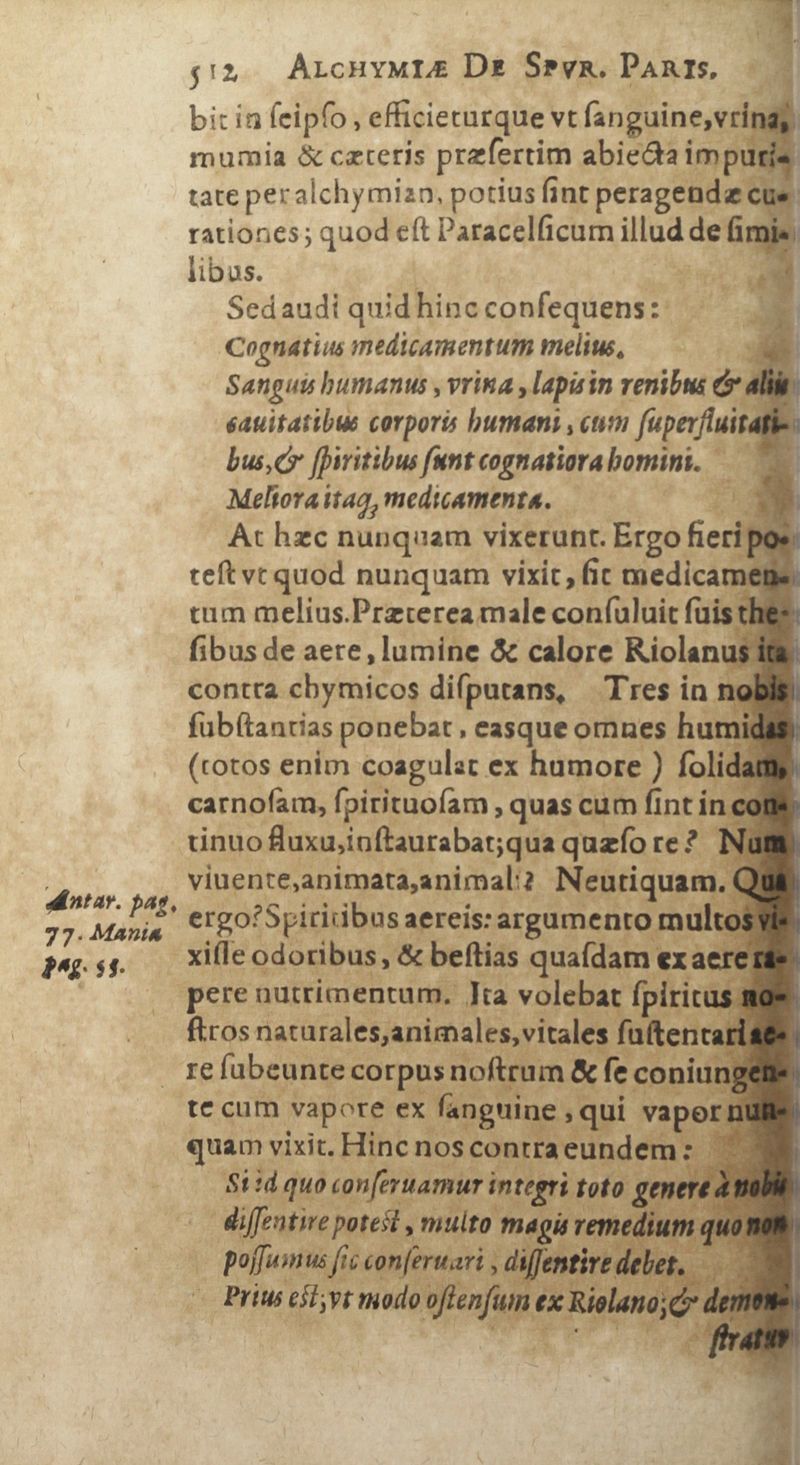 512 ALCHYMIÆ DE SPVR. PARIS.
bit in ſeipſo, efficieturque vt ſanguine,vrina,
mumia & cæteris præſertim abiecta impuri-
tate per alchymian, potius ſint peragendæ cu-
rationes; quod eſt Paracelſicum illud de ſimi-
libus.
Sed audi quid hinc conſequens:
Cognatius medicamentum melius.
Sanguis humanus, vrina, lapis in renibus & aliis
cauitatibus corporis humani, cum ſuperfluitati-
bus,& ſpiritibus ſunt cognatiora homini.
Meliora itaq; medicamenta.
At hæc nunquam vixerunt. Ergo fieri po-
teſt vt quod nunquam vixit, ſit medicamen-
tum melius.Præterea male conſuluit ſuis the-
ſibus de aere, lumine & calore Riolanus ita
contra chymicos diſputans. Tres in nobis
ſubſtantias ponebat, easque omnes humidas
(totos enim coagulat ex humore ) ſolidam,
carnoſam, ſpirituoſam, quas cum ſint in con-
tinuo fluxu,inſtaurabat;qua quæſo re? Num
viuente,animata,animali? Neutiquam. Qua
Antar. pag.
77. Mania
pag. 55.
ergo?Spiritibus aereis: argumento multos vi-
xiſſe odoribus, & beſtias quaſdam ex aere ra-
pere nutrimentum. Ita volebat ſpiritus no-
ſtros naturales,animales,vitales ſuſtentari ae-
re ſubeunte corpus noſtrum & ſe coniungen-
te cum vapore ex ſanguine, qui vapor nun-
quam vixit. Hinc nos contra eundem:
Si id quo conſeruamur integri toto genere à nobis
diſſentire poteſt, multo magis remedium quo non
poſſumus ſic conſeruari, diſſentire debet.
Prius eſt;vt modo oſtenſum ex Riolano;& demon-
ſtratur